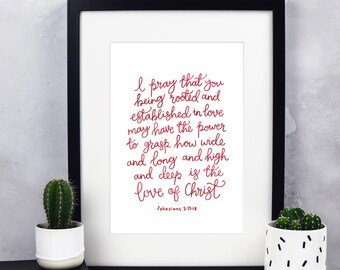 I pray that you
being rooted and
established in love
may have the power
to grasp how wide
and long and high
and deep is the
love of Christ
Ephesians 3:17-18